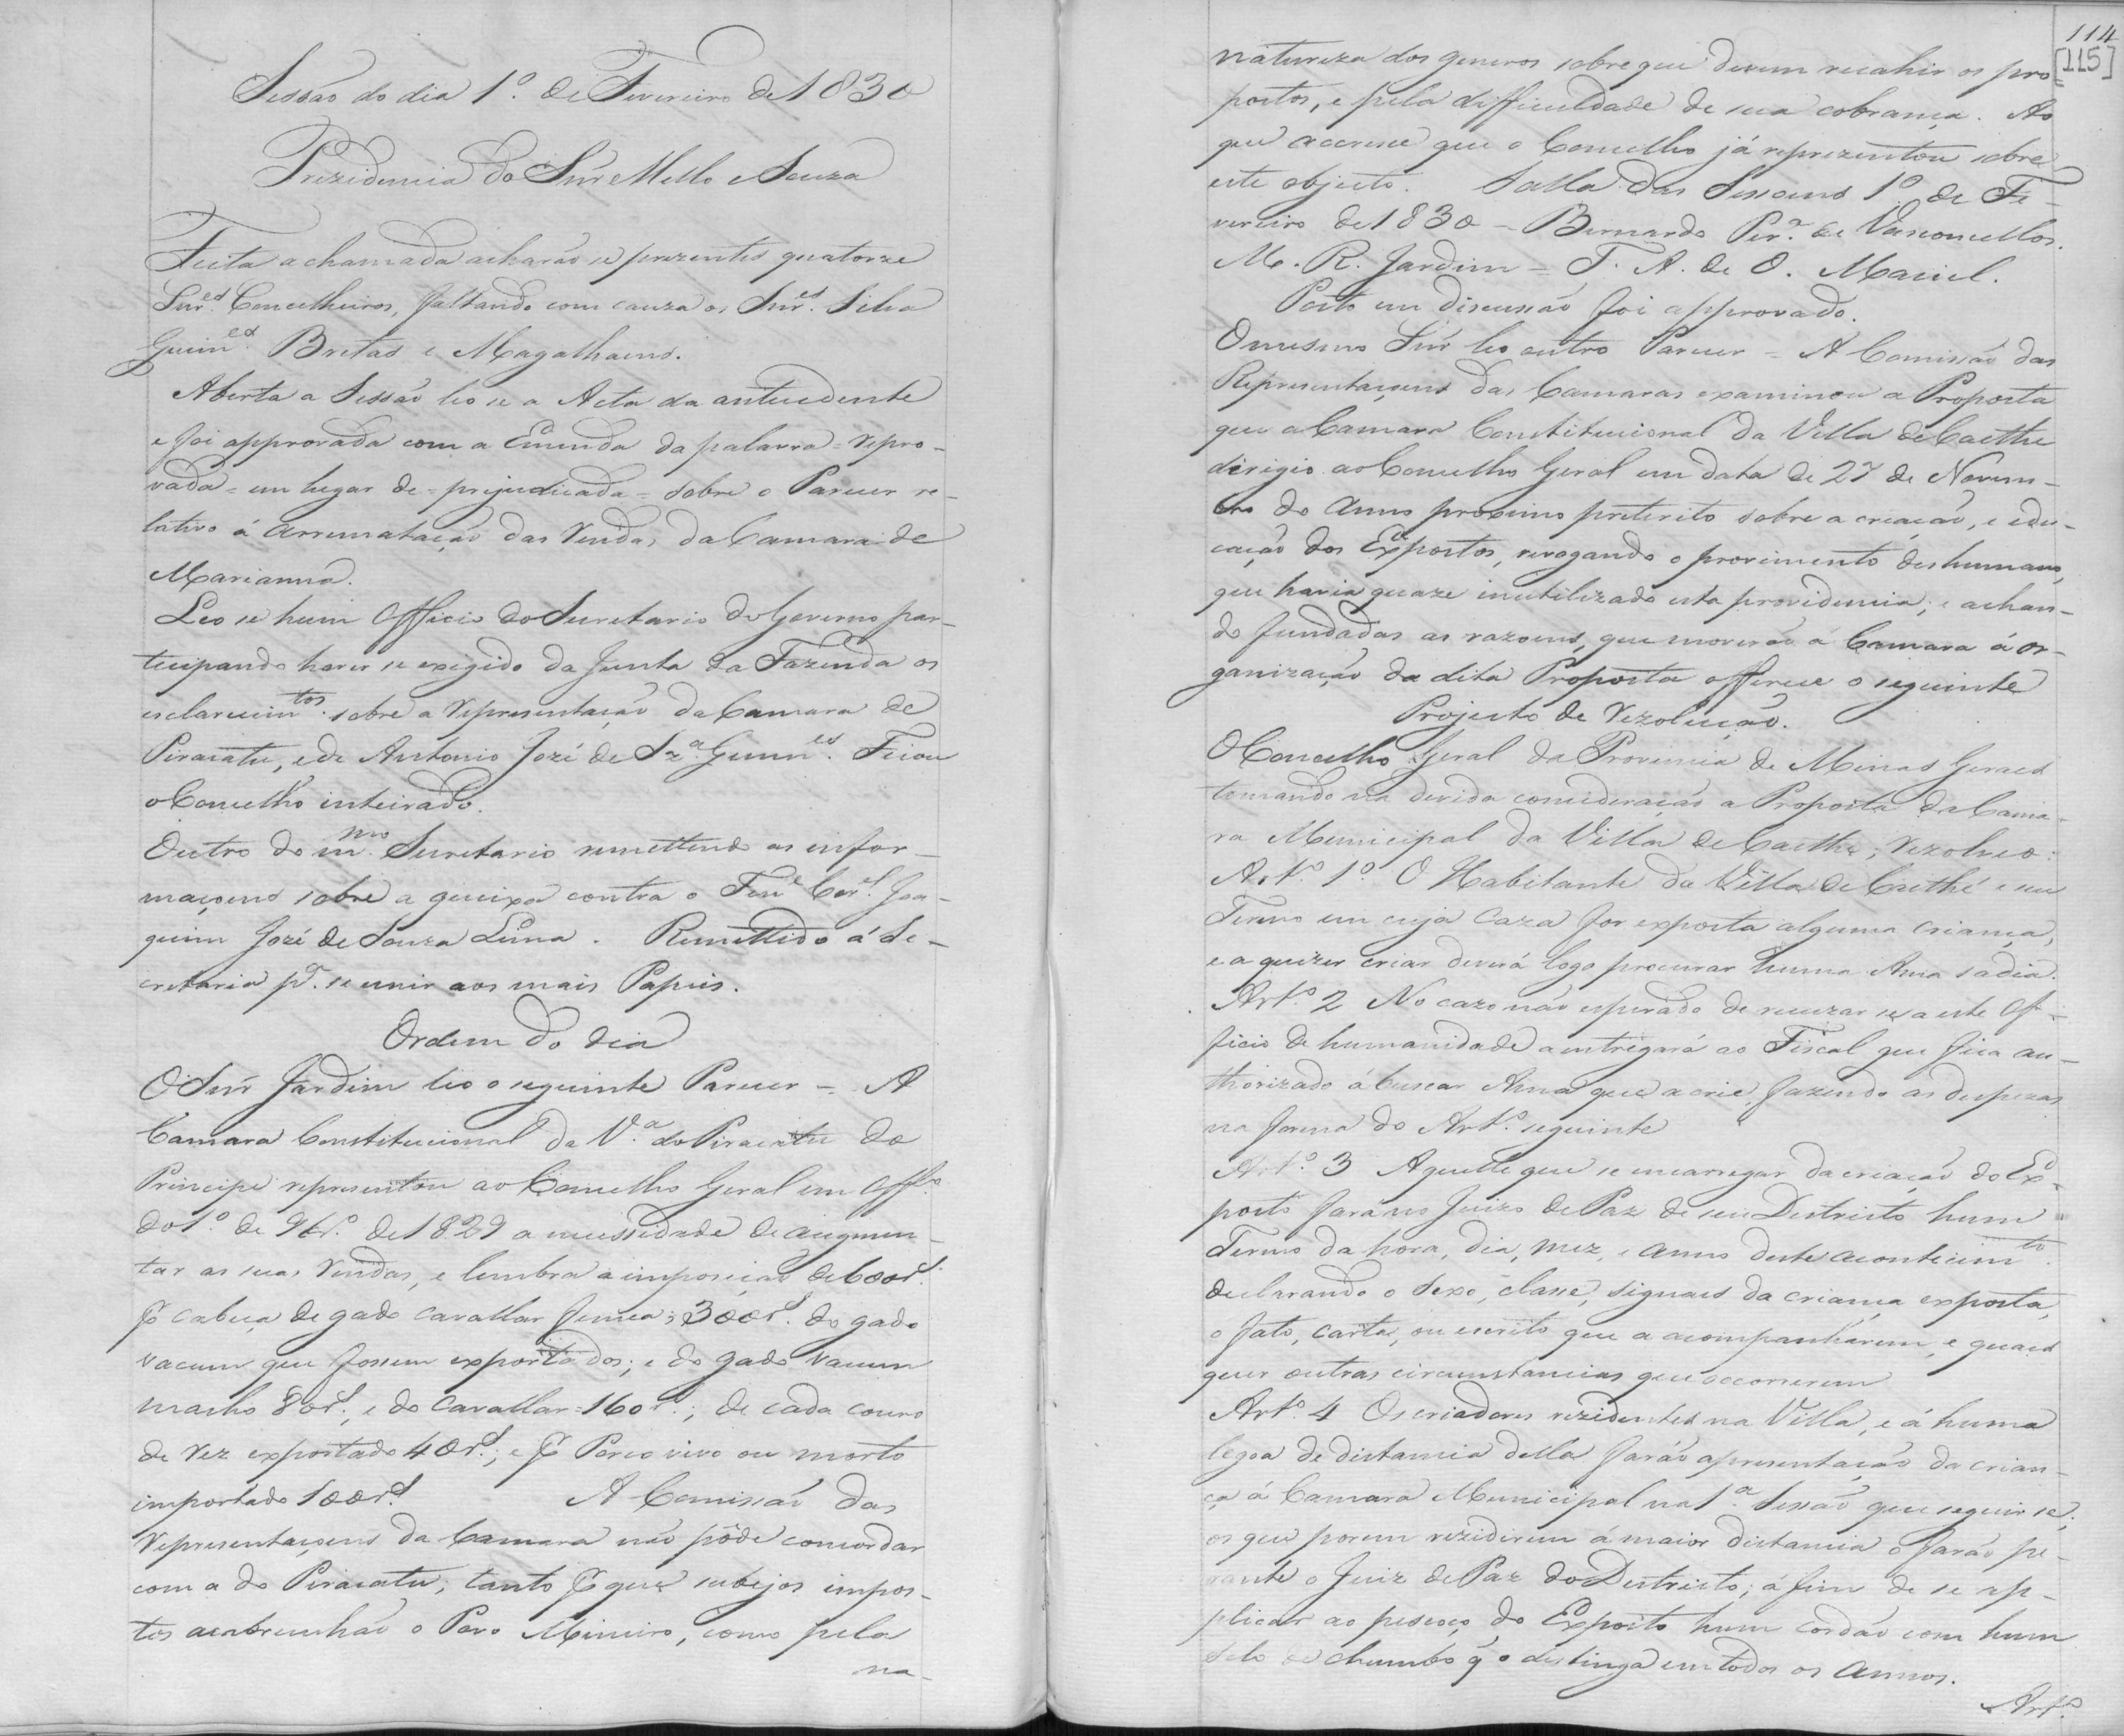 Sessão do dia 1.º de Fevereiro de 1830
Prezidencia do Snr Mello e Souza
Feita a chamada acharão se prezentes quatorze
Snr.es Concelheiros, faltando com cauza os Snr.es Silva
Guim.es Bretas e Magalhaens.
Aberta a Sessão leo se a Acta da antecedente
e foi approvada com a Emenda da palavra = repro-
vada = em lugar de = prejudicada = sobre o Parecer re-
lativo á arrematação das Rendas da Camara de
Marianna.
Leo se hum Officio do Secretario do Governo par-
ticipando haver se exigido da Junta da Fazenda os
esclarecim.tos sobre a representação da Camara de
Piracatu, e de Antonio Jozé de Sz.a Guim.es. Ficou
o Concelho inteirado.
Outro do m.mo Secretario remettendo as infor-
maçoens sobre a queixa contra o Ten.e Cor.el Joa-
quim Jozé de Souza Lima. Remettido á Se-
cretaria p.a se unir aos mais Papeis.
Ordem do dia
O Snr Jardim leo o seguinte Parecer = A
Camara Constitucional da V.a do Piracatu do
Principe representou ao Concelho Geral em Off.o
do 1.º de 9br.o de 1829 a necessidade de augmen-
tar as suas rendas, e lembra a imposição de 600r.s
P cabeça de gado cavallar femea; 300r.s do gado
vacum que fossem exportados; e do gado vacum
macho 80r.s, e do cavallar = 160r.s; de cada couro
de rez exportado 40r.s; e P Porco vivo ou morto
importado 100r.s A Comissão das
representaçoens da Camara não póde concordar
com a do Piracatu; tanto P que sobejos impos-
tos acabrunhão o Povo Mineiro, como pela
na-
114
[115]
natureza dos generos sobre que devem recahir os pro-
postos, e pela difficuldade de sua cobrança. Ao
que accresce que o Concelho já reprezentou sobre
este objecto. Salla das Sessoens 1.º de Fe-
vereiro de 1830 - Bernardo Per.a de Vasconcellos.
M. R. Jardim = T. A. de O. Maciel.
Posto em discussão foi approvado.
O mesmo Snr leo outro Parecer = A Comissão das
Representaçoens das Camaras examinou a Proposta
que a Camara Constitucional da Villa de Caethe
dirigio ao Concelho Geral em data de 27 de Novem-
bro do Anno proximo preterito sobre a criação, e edu-
cação dos Expostos, revogando o provimento deshumano,
que havia quaze inutilizado esta providencia; e achan-
do fundadas as razoens, que moverão a Camara á or-
ganização da dita Proposta offerece o seguinte
Projecto de Rezolução.
O Concelho Geral da Provincia de Minas Geraes
tomando na devida consideração a Proposta da Cama-
ra Municipal da Villa de Caethe; Rezolveo:
Art.º 1.º O Habitante da Villa de Caethé e seu
Termo em cuja caza for exposta alguma criança,
e a quizer criar deverá logo procurar huma Ama sadia.
Art.º 2 No cazo não esperado de recuzar se a este Of-
ficio de humanidade a entregará ao Fiscal que fica au-
thorizado á buscar Ama que a crie, fazendo as despezas
na forma do Art.º seguinte
Art.º 3 Aquelle que se encarregar da criação do Ex-
posto fará no Juizo de Paz de seu Destricto hum
Termo da hora, dia, mez, e anno deste acontecim.to
declarando o sexo, classe, signaes da criança exposta,
o fato, carta, ou escrito que a acompanharem, e quaes
quer outras circunstancias que occorrerem
Art.º 4 Os criadores rezidentes na Villa, e á huma
legoa de distancia della farão apresentação da crian-
ça á Camara Municipal na 1.a Sessão que seguir se;
os que porem rezidirem á maior distancia o farão pe-
rante o Juiz de Paz do Destricto; á fim de se ap-
plicar ao pescoço do Exposto hum cordão com hum
selo de chumbo q̃ o distinga em todos os annos.
Art.º